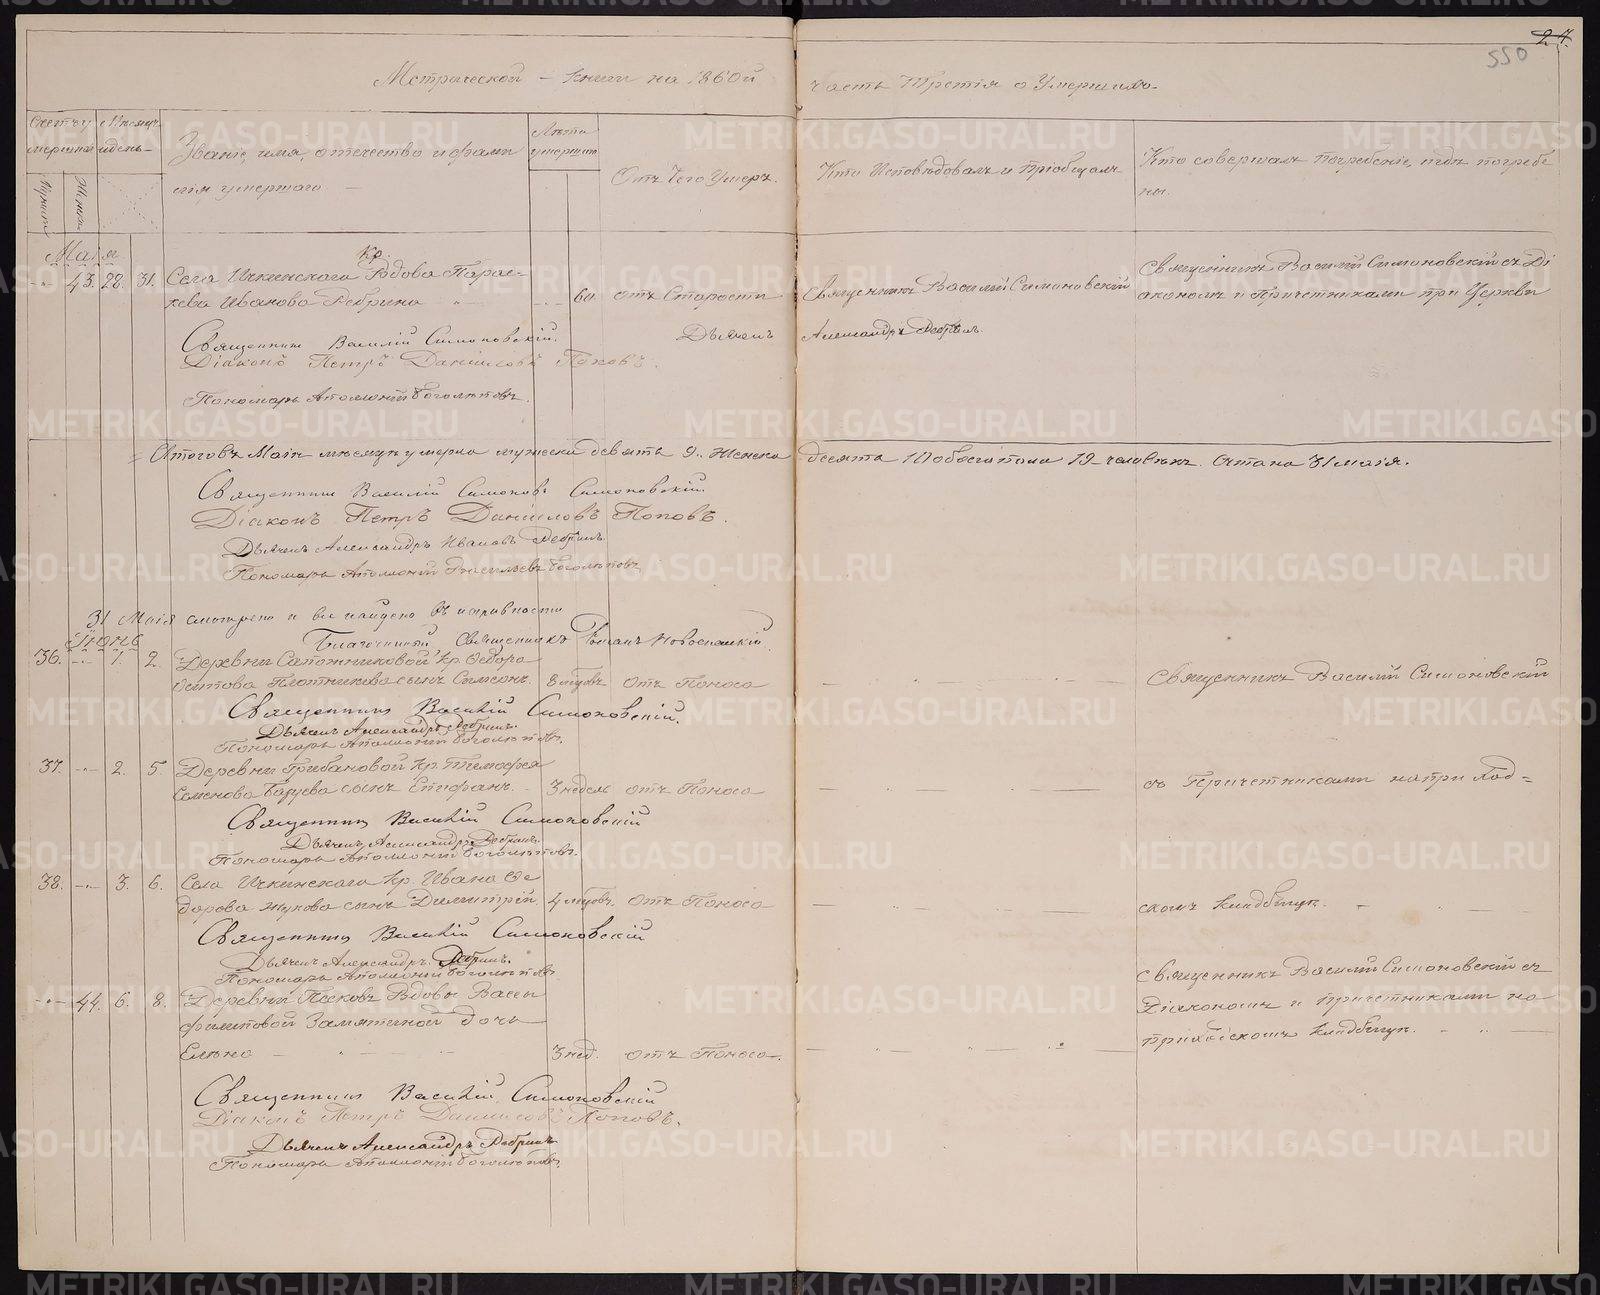 24.
550
Метрической - книги на 1860й часть третія о Умершихъ.
Счетъ умершихъ
Мѣсяцъ и день
Званіе, имя, отечество и фамилія умершаго
Лѣта умершихъ
Отъ чего Умеръ.
Кто Исповѣдовалъ и Пріобщалъ
Кто совершалъ Погребеніе, и гдѣ погребены.
Мужска
Женска
Маія
Кр.
43. 28. 31. Села Ичкинскаго Вдова Парас-
кева Иванова Ребрина 60 отъ Старости Священникъ Василій Симоновскій
Священникъ Василій Симоновскій съ Ді
акономъ и Причетниками при Церкви
Священникъ Василій Симоновскій. Дьячекъ Александръ Ребринъ.
Діаконъ Петръ Даніиловъ Поповъ.
Пономарь Аполлоній Боголѣповъ.
Итого въ Маіи мѣсяцѣ умерло мужеска девять 9. Женска десять 10 обоего пола 19 человѣкъ. Счтано 31 маія.
Священникъ Василій Симоновъ Симоновскій.
Діаконъ Петръ Даніиловъ Поповъ.
Дьячекъ Александръ Ивановъ Ребринъ.
Пономарь Аполлоній Васильевъ Боголѣповъ
31 Маія смотрено и все найдено въ исправности
Благочинный Священникъ Іоаннъ Новоспасскій.
Іюнь
36. 1. 2. Деревни Сапожниковой Кр. Ѳедора
Осипова Плотникова сынъ Симеонъ. 8 мцовъ отъ Поноса
Священникъ Василій Симоновскій
Священникъ Василій Симоновскій.
Дьячекъ Александръ Ребринъ.
Пономарь Аполлоній Боголѣповъ.
37. 2. 5. Деревни Грибановой кр. Тимофея
Семенова Багуева сынъ Епифанъ. 3 недель отъ Поноса
съ Причетниками на при Ход=
Священникъ Василій Симоновскій
Дьячекъ Александръ Ребринъ.
Пономарь Аполлоній Боголѣповъ.
38. 3. 6. Села Ичкинскаго Кр. Ивана Ѳе
дорова Жукова сынъ Димитрій 4 мцовъ. отъ Поноса
скомъ Кладбищѣ.
Священникъ Василій Симоновскій
Дьячекъ Александръ Ребринъ.
Пономарь Аполлоній Боголѣповъ
44. 6. 8. Деревни Песковъ Вдовы Васы
Филиповой Замятиной дочь
Елена 3 нед. отъ Поноса.
Священникъ Василій Симоновскій съ
Діакономъ и Причетниками на
приходскомъ Кладбищѣ.
Священникъ Василій Симоновскій
Діаконъ Петръ Даниловъ Поповъ.
Дьячекъ Александръ Ребринъ
Пономарь Аполлоній Боголѣповъ
METRIKI.GASO-URAL.RU